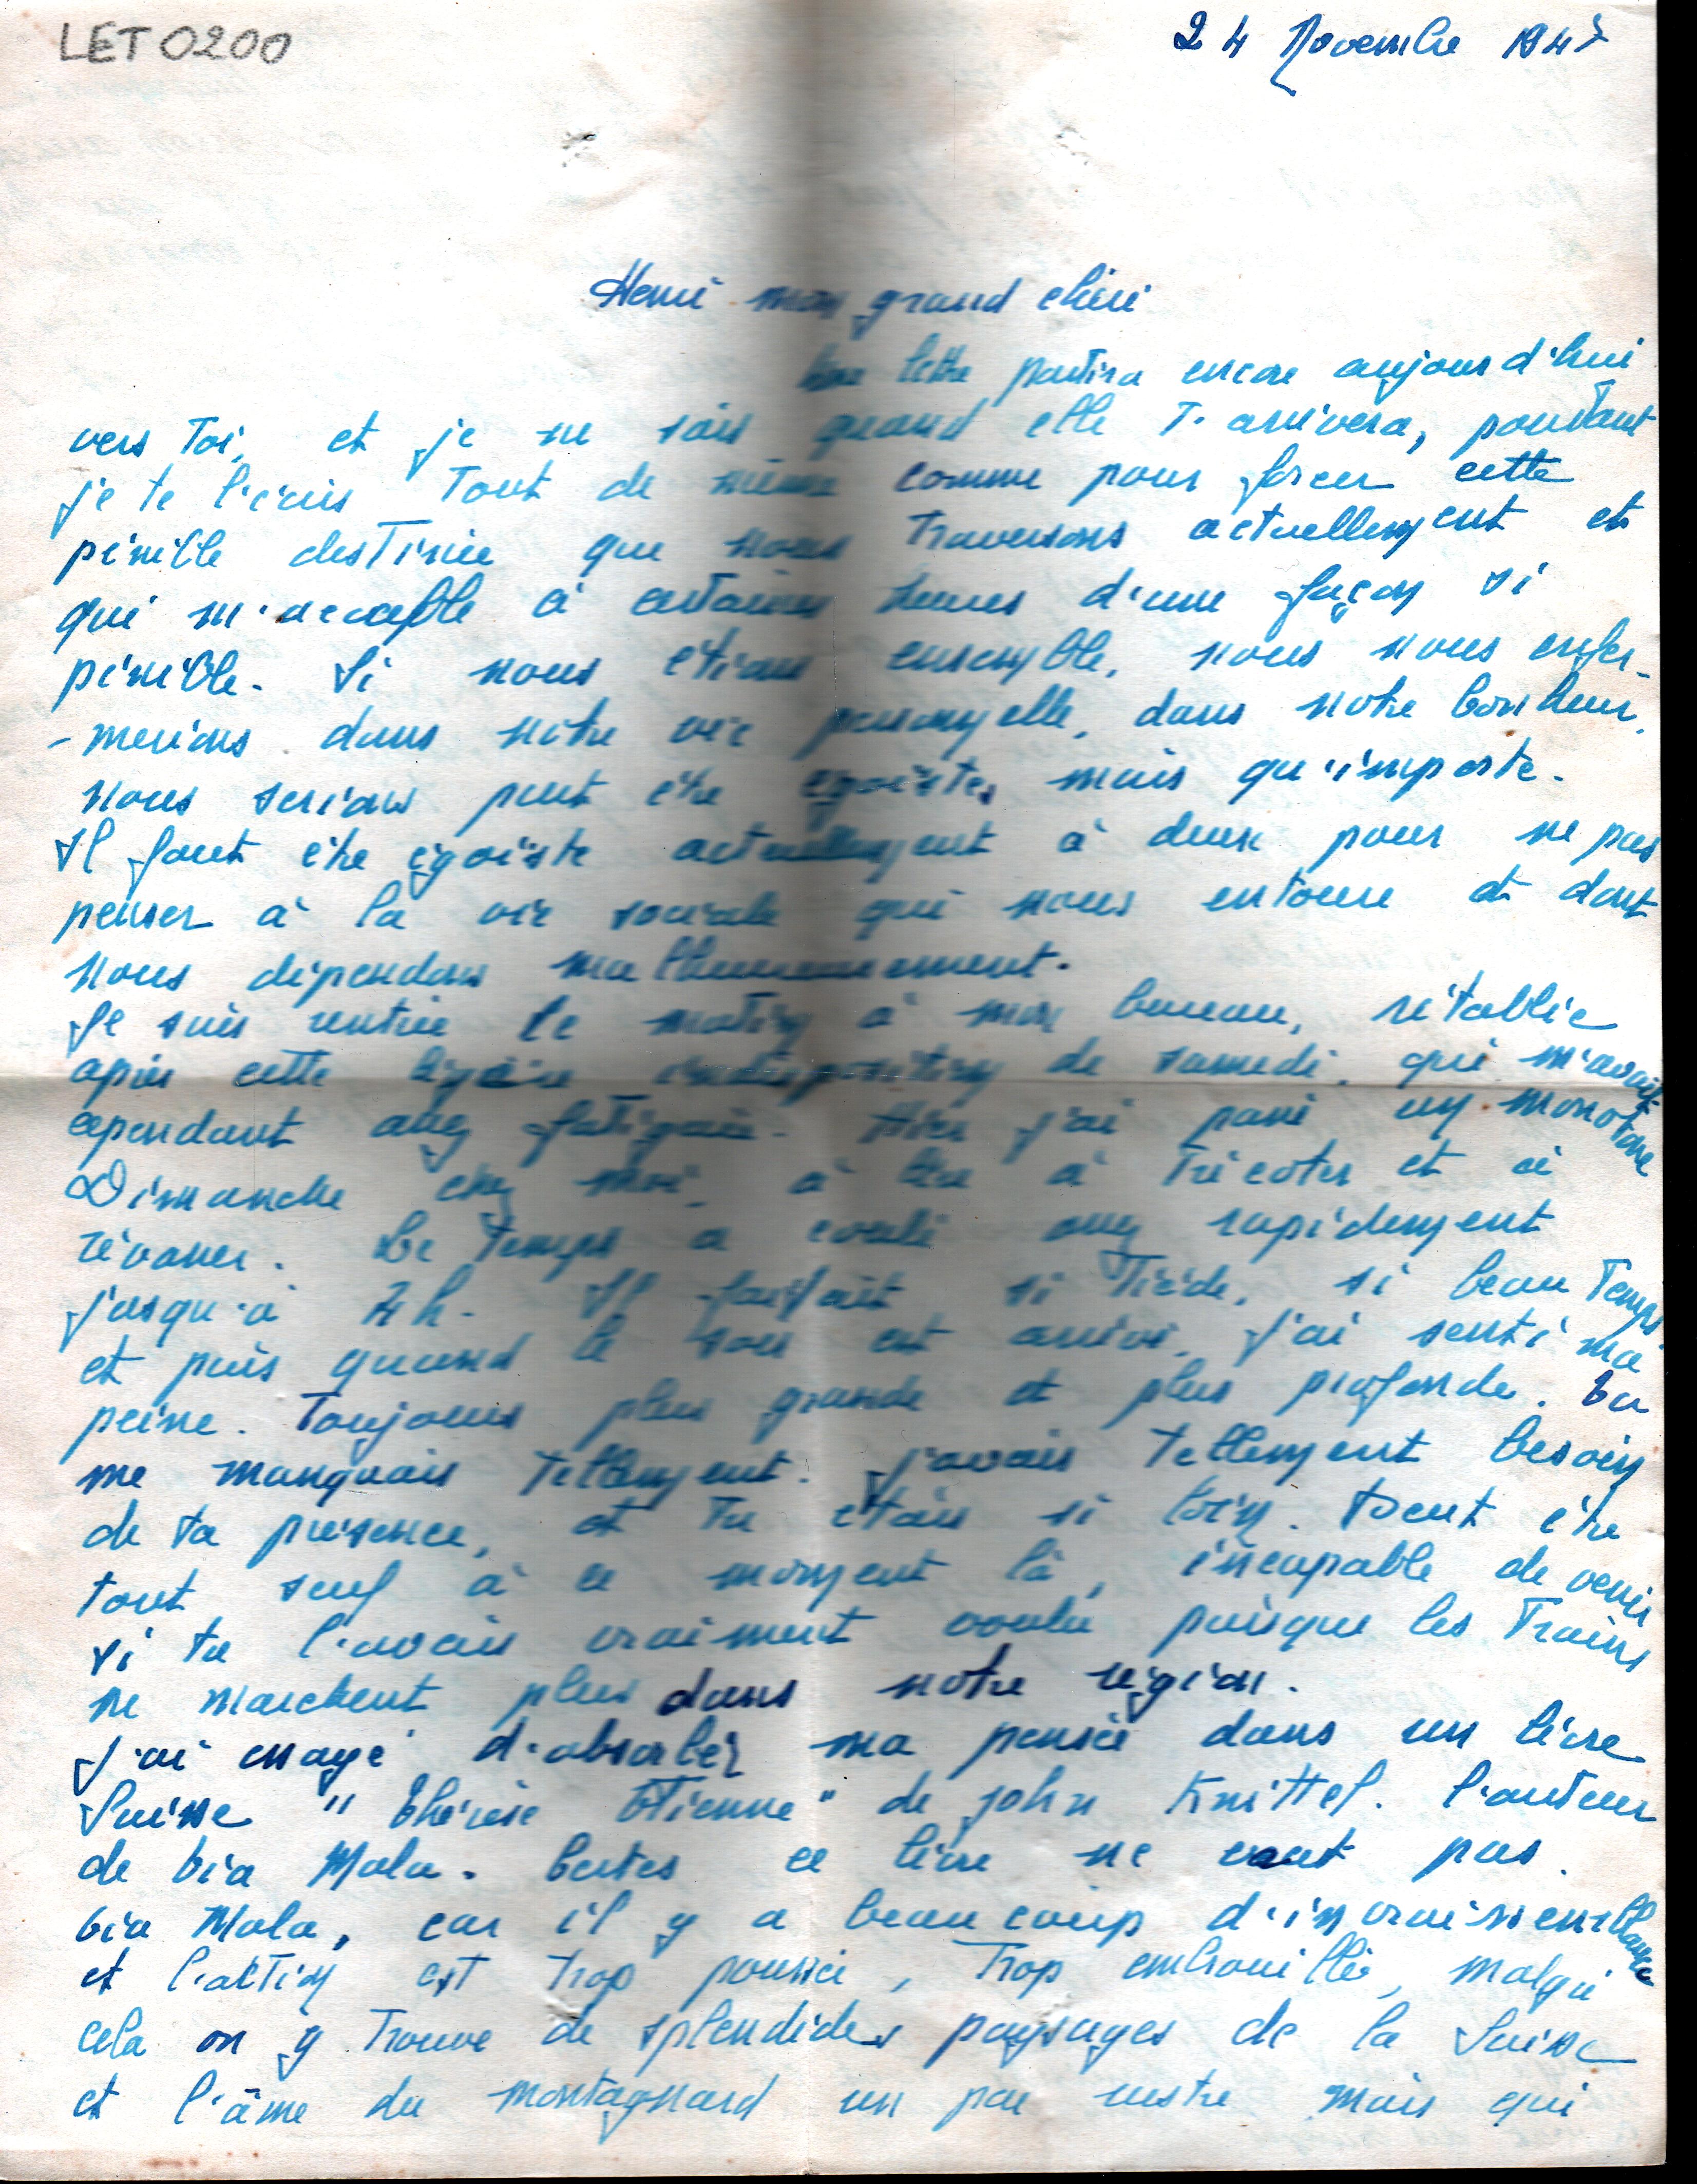 LET0200
24 Novembre 1947
Henri mon grand chéri
Une lettre partira encore aujourd'hui
vers toi, et je ne sais quand elle t'arrivera, pourtant
je te l'écris tout de même comme pour forcer cette
pénible destinée que nous traversons actuellement et
qui m'accable à certaines heures d'une façon si
pénible. Si nous étions ensemble, nous nous enfer-
-merions dans notre vie personnelle, dans notre bonheur,
nous serions peut être égoistes mais qu'importe.
Il faut être égoiste actuellement à deux pour ne pas
penser à la vie sociale qui nous entoure et dont
nous dépendons malheureusement.
Je suis rentrée ce matin à mon bureau, rétablie
après cette légère indisposition de samedi, qui m'avait
cependant assez fatiguée. Hier j'ai passé un monotone
Dimanche chez moi, à lire à tricoter et à
rêvasser. Le temps a coulé assez rapidement
jusqu'à 4h. Il faisait si tiède, si beau temps
et puis quand le soir est arrivé, j'ai senti ma
peine. Toujours plus grande et plus profonde. Tu
me manquais tellement. J'avais tellement besoin
de ta présence, et tu étais si loin. Peut être
tout seul à ce moment là, incapable de venir
si tu l'avais vraiment voulu puisque les trains
ne marchent plus dans notre région.
J'ai essayé d'absorber ma pensée dans un livre
Suisse "Thérèse Etienne" de john Knittel. l'auteur
de Via Mala. Certes ce livre ne vaut pas
Via Mala, car il y a beaucoup d'invraisemblance
et l'action est trop poussée, trop embrouillée, malgré
cela on y trouve de splendides paysages de la Suisse
et l'âme du montagnard un peu rustre mais qui